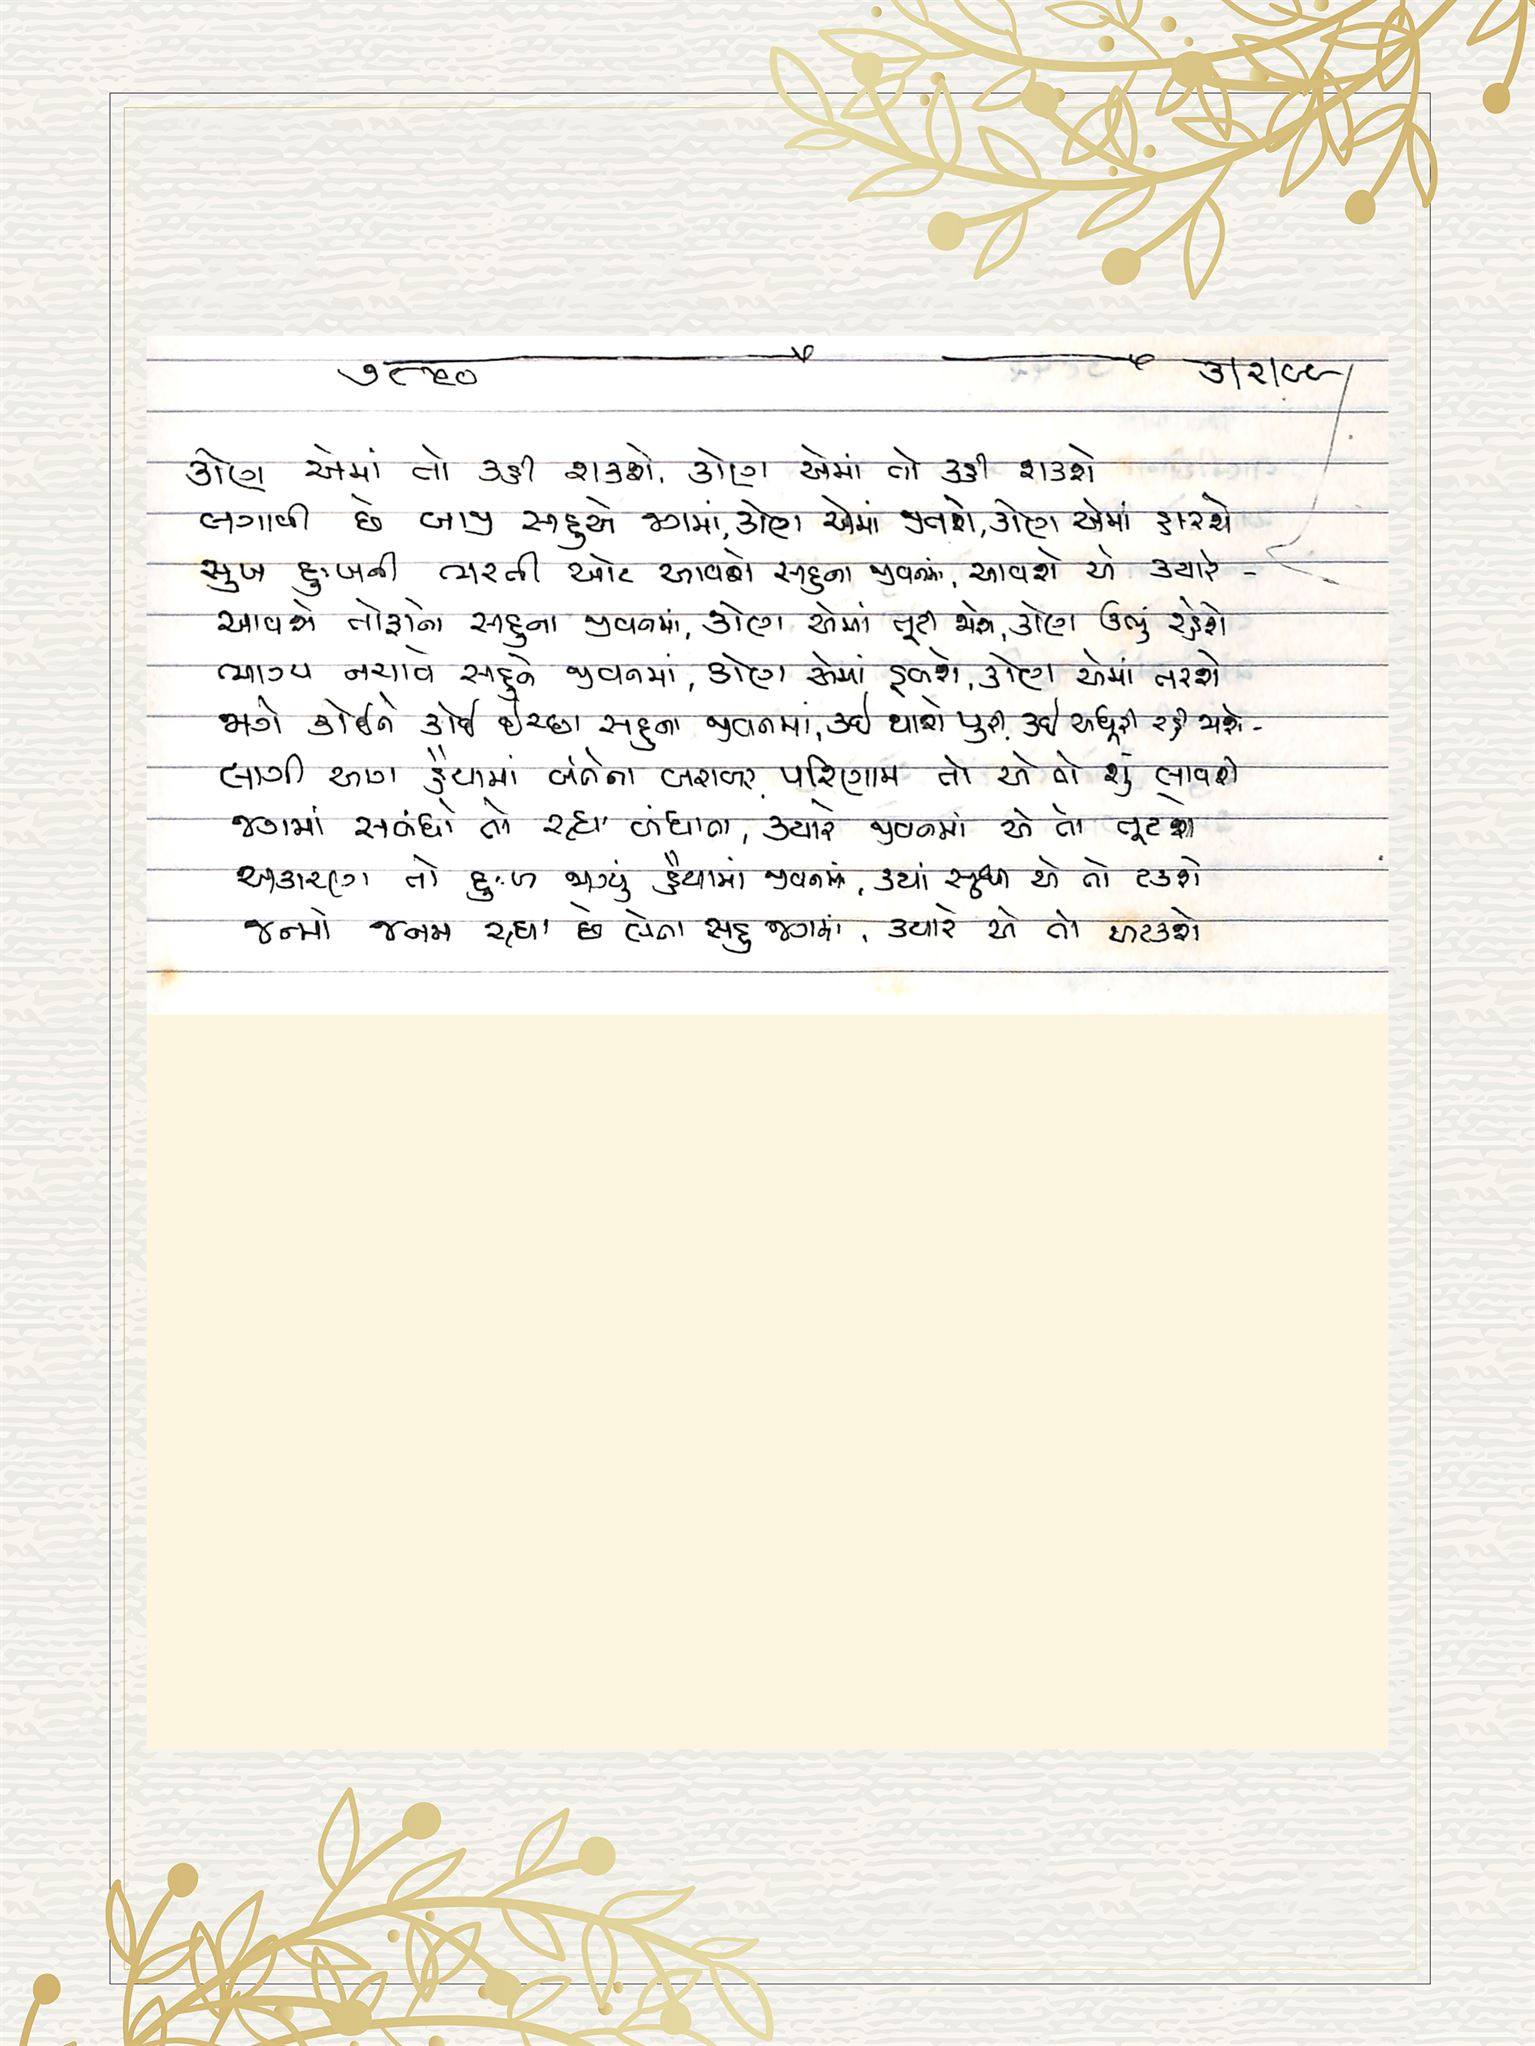 ૭૮૫૦ ૩/૨/૯૯
કોણ એમાં તો કહી શકશે, કોણ એમાં તો કહી શકશે
લગાવી છે બાજી સહુએ જગમાં, કોણ એમાં જીતશે, કોણ એમાં હારશે
સુખ દુઃખની ભરતી ઓટ આવશે સહુના જીવનમાં, આવશે એ ક્યારે -
આવશે તોફાનો સહુના જીવનમાં, કોણ એમાં તૂટી જાશે, કોણ ઉભું રહેશે
ભાગ્ય નચાવે સહુને જીવનમાં, કોણ એમાં ડૂબશે, કોણ એમાં તરશે
જાગે કોઈને કોઈ ઈચ્છા સહુના જીવનમાં, કઈ થાશે પુરી, કઈ અધૂરી રહી જાશે -
લાગી આગ હૈયામાં બંનેના બરાબર, પરિણામ તો એ તો શું લાવશે
જગમાં સબંધો તો રહ્યા બંધાતા, ક્યારે જીવનમાં એ તો તૂટશે
અકારણ તો દુઃખ જાગ્યું હૈયામાં જીવનમાં, ક્યાં સુધી એ તો ટકશે
જન્મો જનમ રહ્યા છે લેતા સહુ જગમાં, ક્યારે એ તો અટકશે